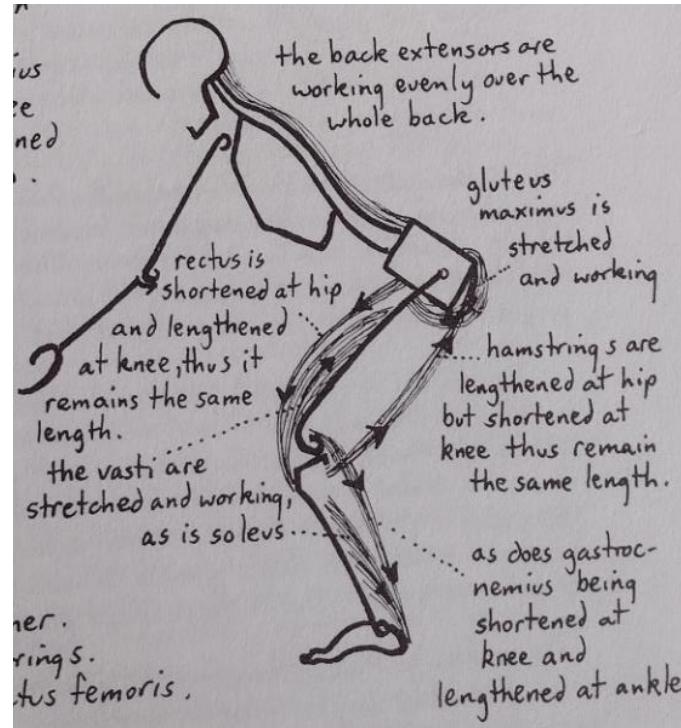 ius
ee
ned
the back extensors are
working evenly over the
whole back.
gluteus
maximus is
stretched
and working
rectus is
shortened at hip
and lengthened
at knee, thus it
remains the same
length.
hamstrings are
lengthened at hip
but shortened at
knee thus remain
the same length.
the vasti are
stretched and working,
as is soleus
as does gastroc-
nemius being
shortened at
knee and
lengthened at ankle
ner.
rings.
tus femoris.